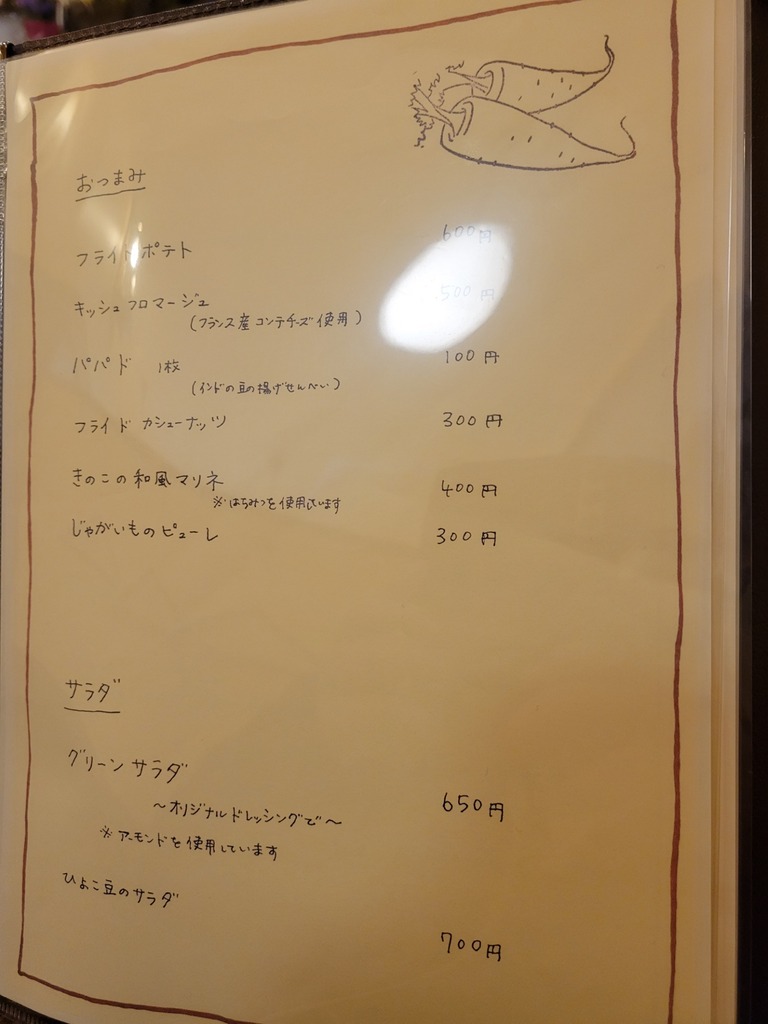 おつまみ
フライドポテト 600円
キッシュフロマージュ 500円
(フランス産コンテチーズ使用)
パパド 1枚 100円
(インドの豆の揚げせんべい)
フライドカシューナッツ 300円
きのこの和風マリネ 400円
※はちみつを使用しています
じゃがいものピューレ 300円
サラダ
グリーンサラダ
～オリジナルドレッシングで～ 650円
※アーモンドを使用しています
ひよこ豆のサラダ
700円